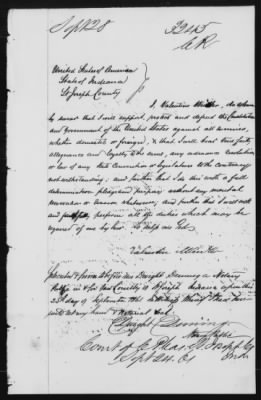 Sept 28
3245
A R
United States of America
State of Indiana
St Joseph County
I, Valentine do solemn
ly swear that I will support, protect and defend the Constitution
and Government of the United States against all enemies,
whether domestic or foreign, & that I will bear true faith,
allegiance and loyalty to the same, any ordinance resolution
or law of any State Convention or Legislature to the contrary
notwithstanding; and further that I do this with a full
determination, pledge and purpose without any mental
reservation or evasion whatsoever, and further that I will well
and faithfully perform all the duties which may be
required of me by law. So help me God.
Valentin
Subscribed & sworn to before me Dwight Deming a Notary
Public in & for said County of St Joseph Indiana upon this
25th day of September 1861 In Whereof I have here
unto set my hand & Notarial Seal
Dwight Deming
Notary Public
Court of C Pleas St Joseph Co
Sept 24 61 Ind